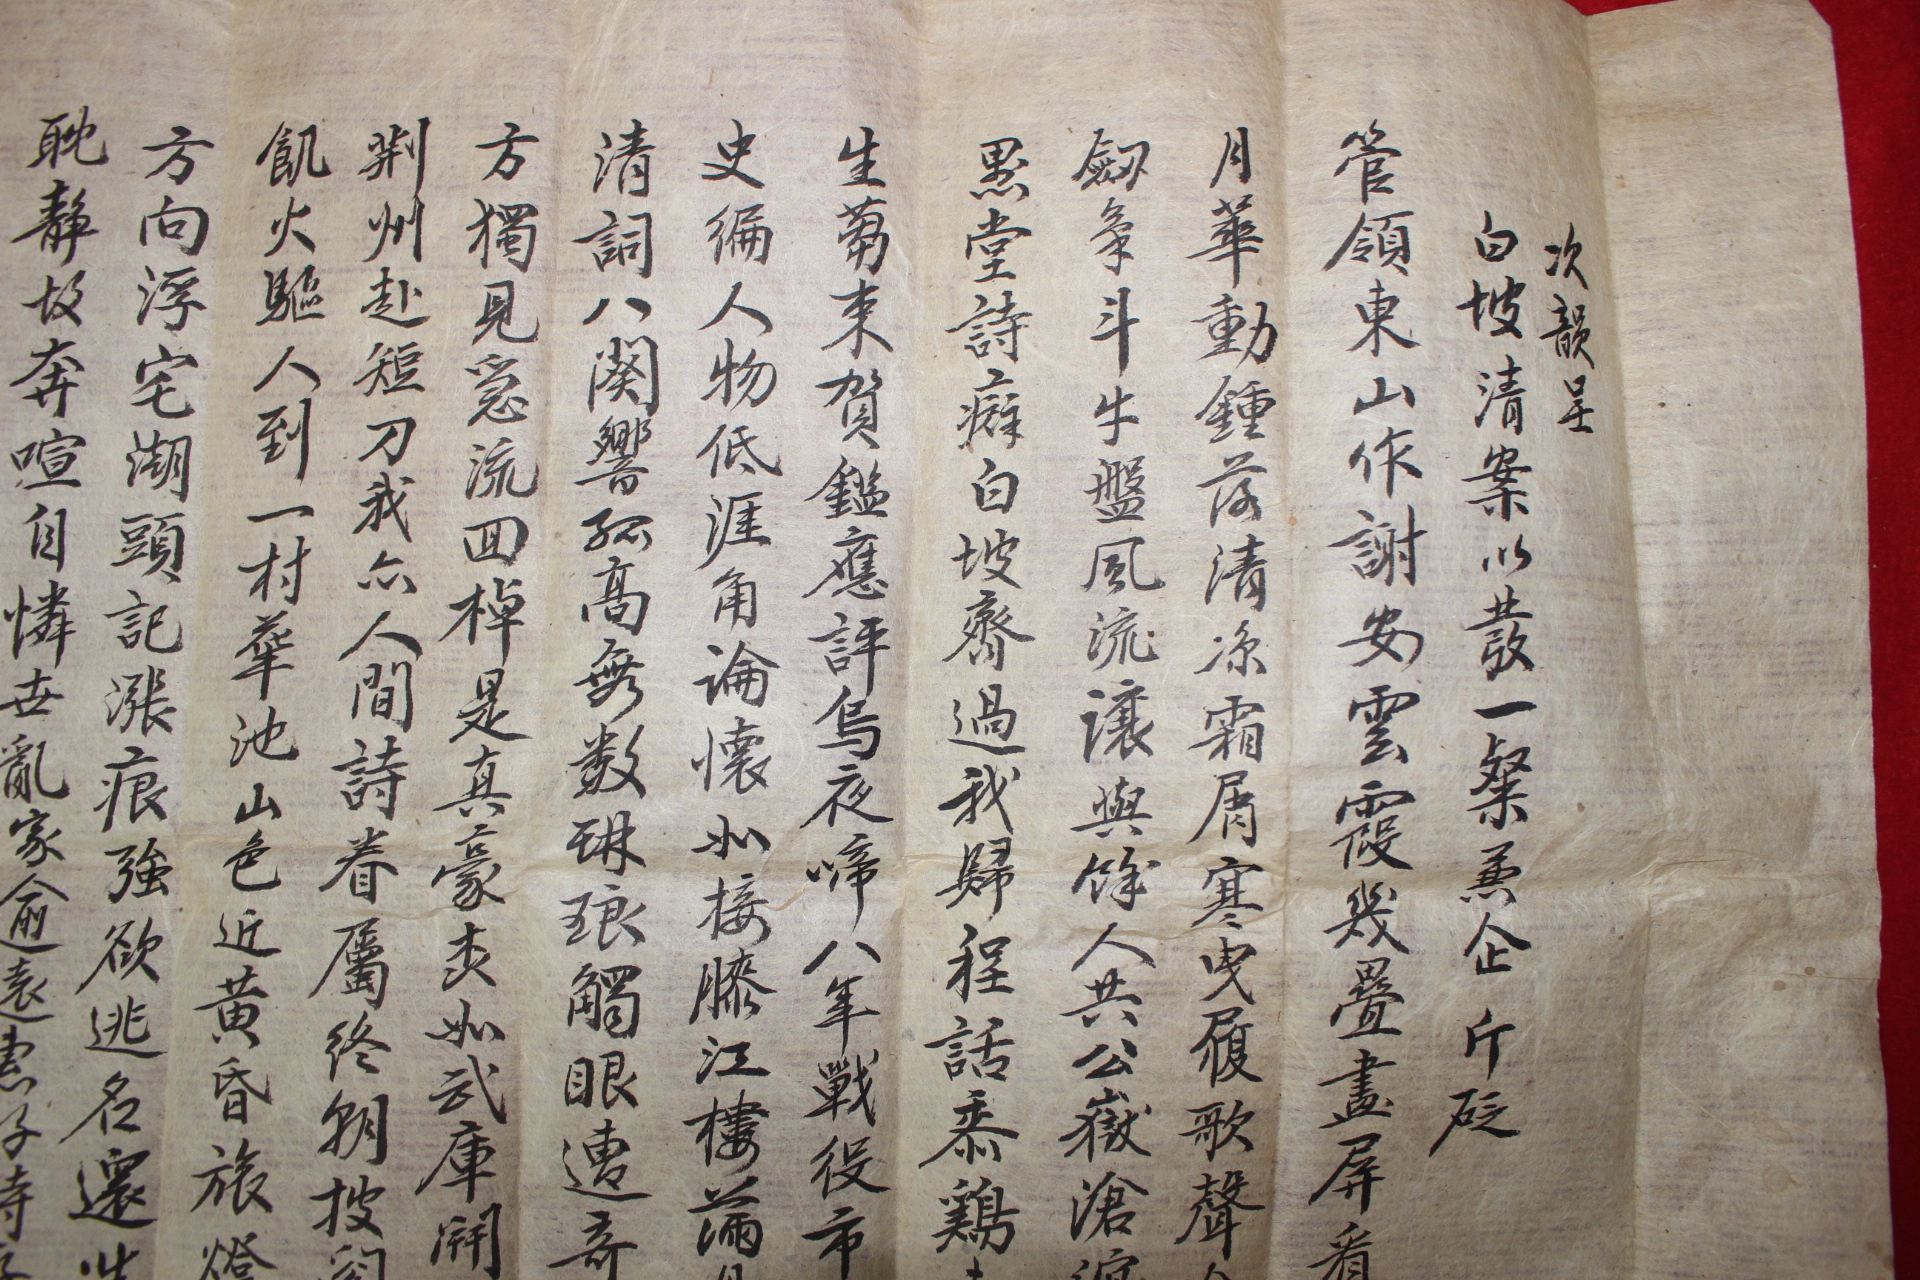 次韻呈
白坡清案以發一粲兼企斤砭
管領東山作謝安雲霞幾疊畫屏看
月華動鍾落清凉霜屑寒曳履歌聲
劔氣斗牛盤風流讓與餘人共公嶽滄
黑堂詩癖白坡齋過我歸程話黍鷄
生蒭束賀鑑應評烏夜啼八年戰役市
史編人物低涯角論懷如接膝江樓
清詞八闋響孤高無数琳琅觸眼遭奇
方獨見急流回棹是真豪炎如武庫開
荆州赴短刀我亦人間詩眷屬終朝披閱
飢火驅人到一村華池山色近黃昏旅燈
方向浮宅湖頭記漲痕強欲逃名還
耽靜故奔喧自憐世亂家愈遠書子詩